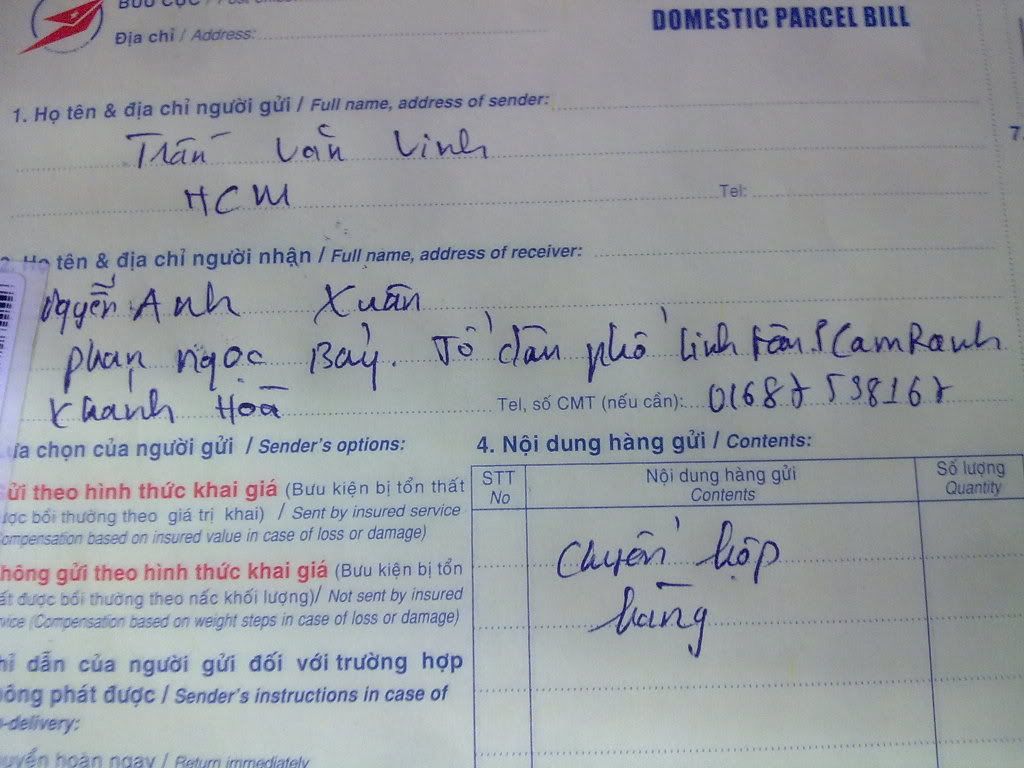 BƯU CỤC /
Địa chỉ / Address:
DOMESTIC PARCEL BILL
1. Họ tên & địa chỉ người gửi / Full name, address of sender:
Trần Văn Vinh
HCM
Tel:
7
2. Họ tên & địa chỉ người nhận / Full name, address of receiver:
Nguyễn Anh Xuân
phan ngọc Bảy. Tổ dân phố linh Cam Ranh
Khánh Hoà
Tel, số CMT (nếu cần):
ựa chọn của người gửi / Sender's options:
ửi theo hình thức khai giá (Bưu kiện bị tổn thất
ược bồi thường theo giá trị khai) / Sent by insured service
ompensation based on insured value in case of loss or damage)
hông gửi theo hình thức khai giá (Bưu kiện bị tổn
ất được bồi thường theo nấc khối lượng)/ Not sent by insured
rvice (Compensation based on weight steps in case of loss or damage)
hỉ dẫn của người gửi đối với trường hợp
hông phát được / Sender's instructions in case of
-delivery:
uyển hoàn ngay / Return immediately
4. Nội dung hàng gửi / Contents:
STT No
Nội dung hàng gửi Contents
Số lượng Quantity
Chuyển hộp
hàng